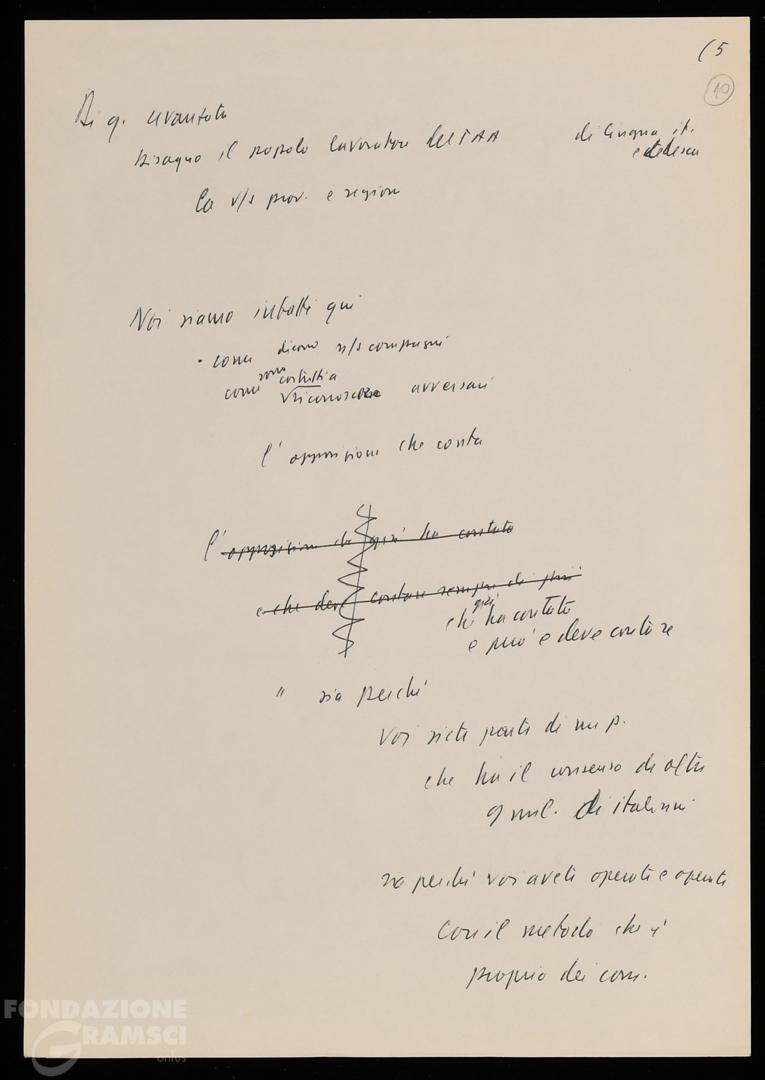 (5
10
Di q. avanzata
bisogno il popolo lavoratore del TAA di lingua it.
e tedesca
la v/s prov. e regione
Noi siamo infatti qui
- come dicono n/s compagni
sono costretti a
come riconoscere avversari
l'opposizione che conta
l'opposizione che già ha contato
e che deve contare sempre di più
già
che ha contato
e può e deve contare
" sia perché
voi siete parte di un p.
che ha il consenso di oltre
9 mil. di italiani
sia perché voi avete operato e operate
con il metodo che è
proprio dei com.
FONDAZIONE
GRAMSCI
onlus